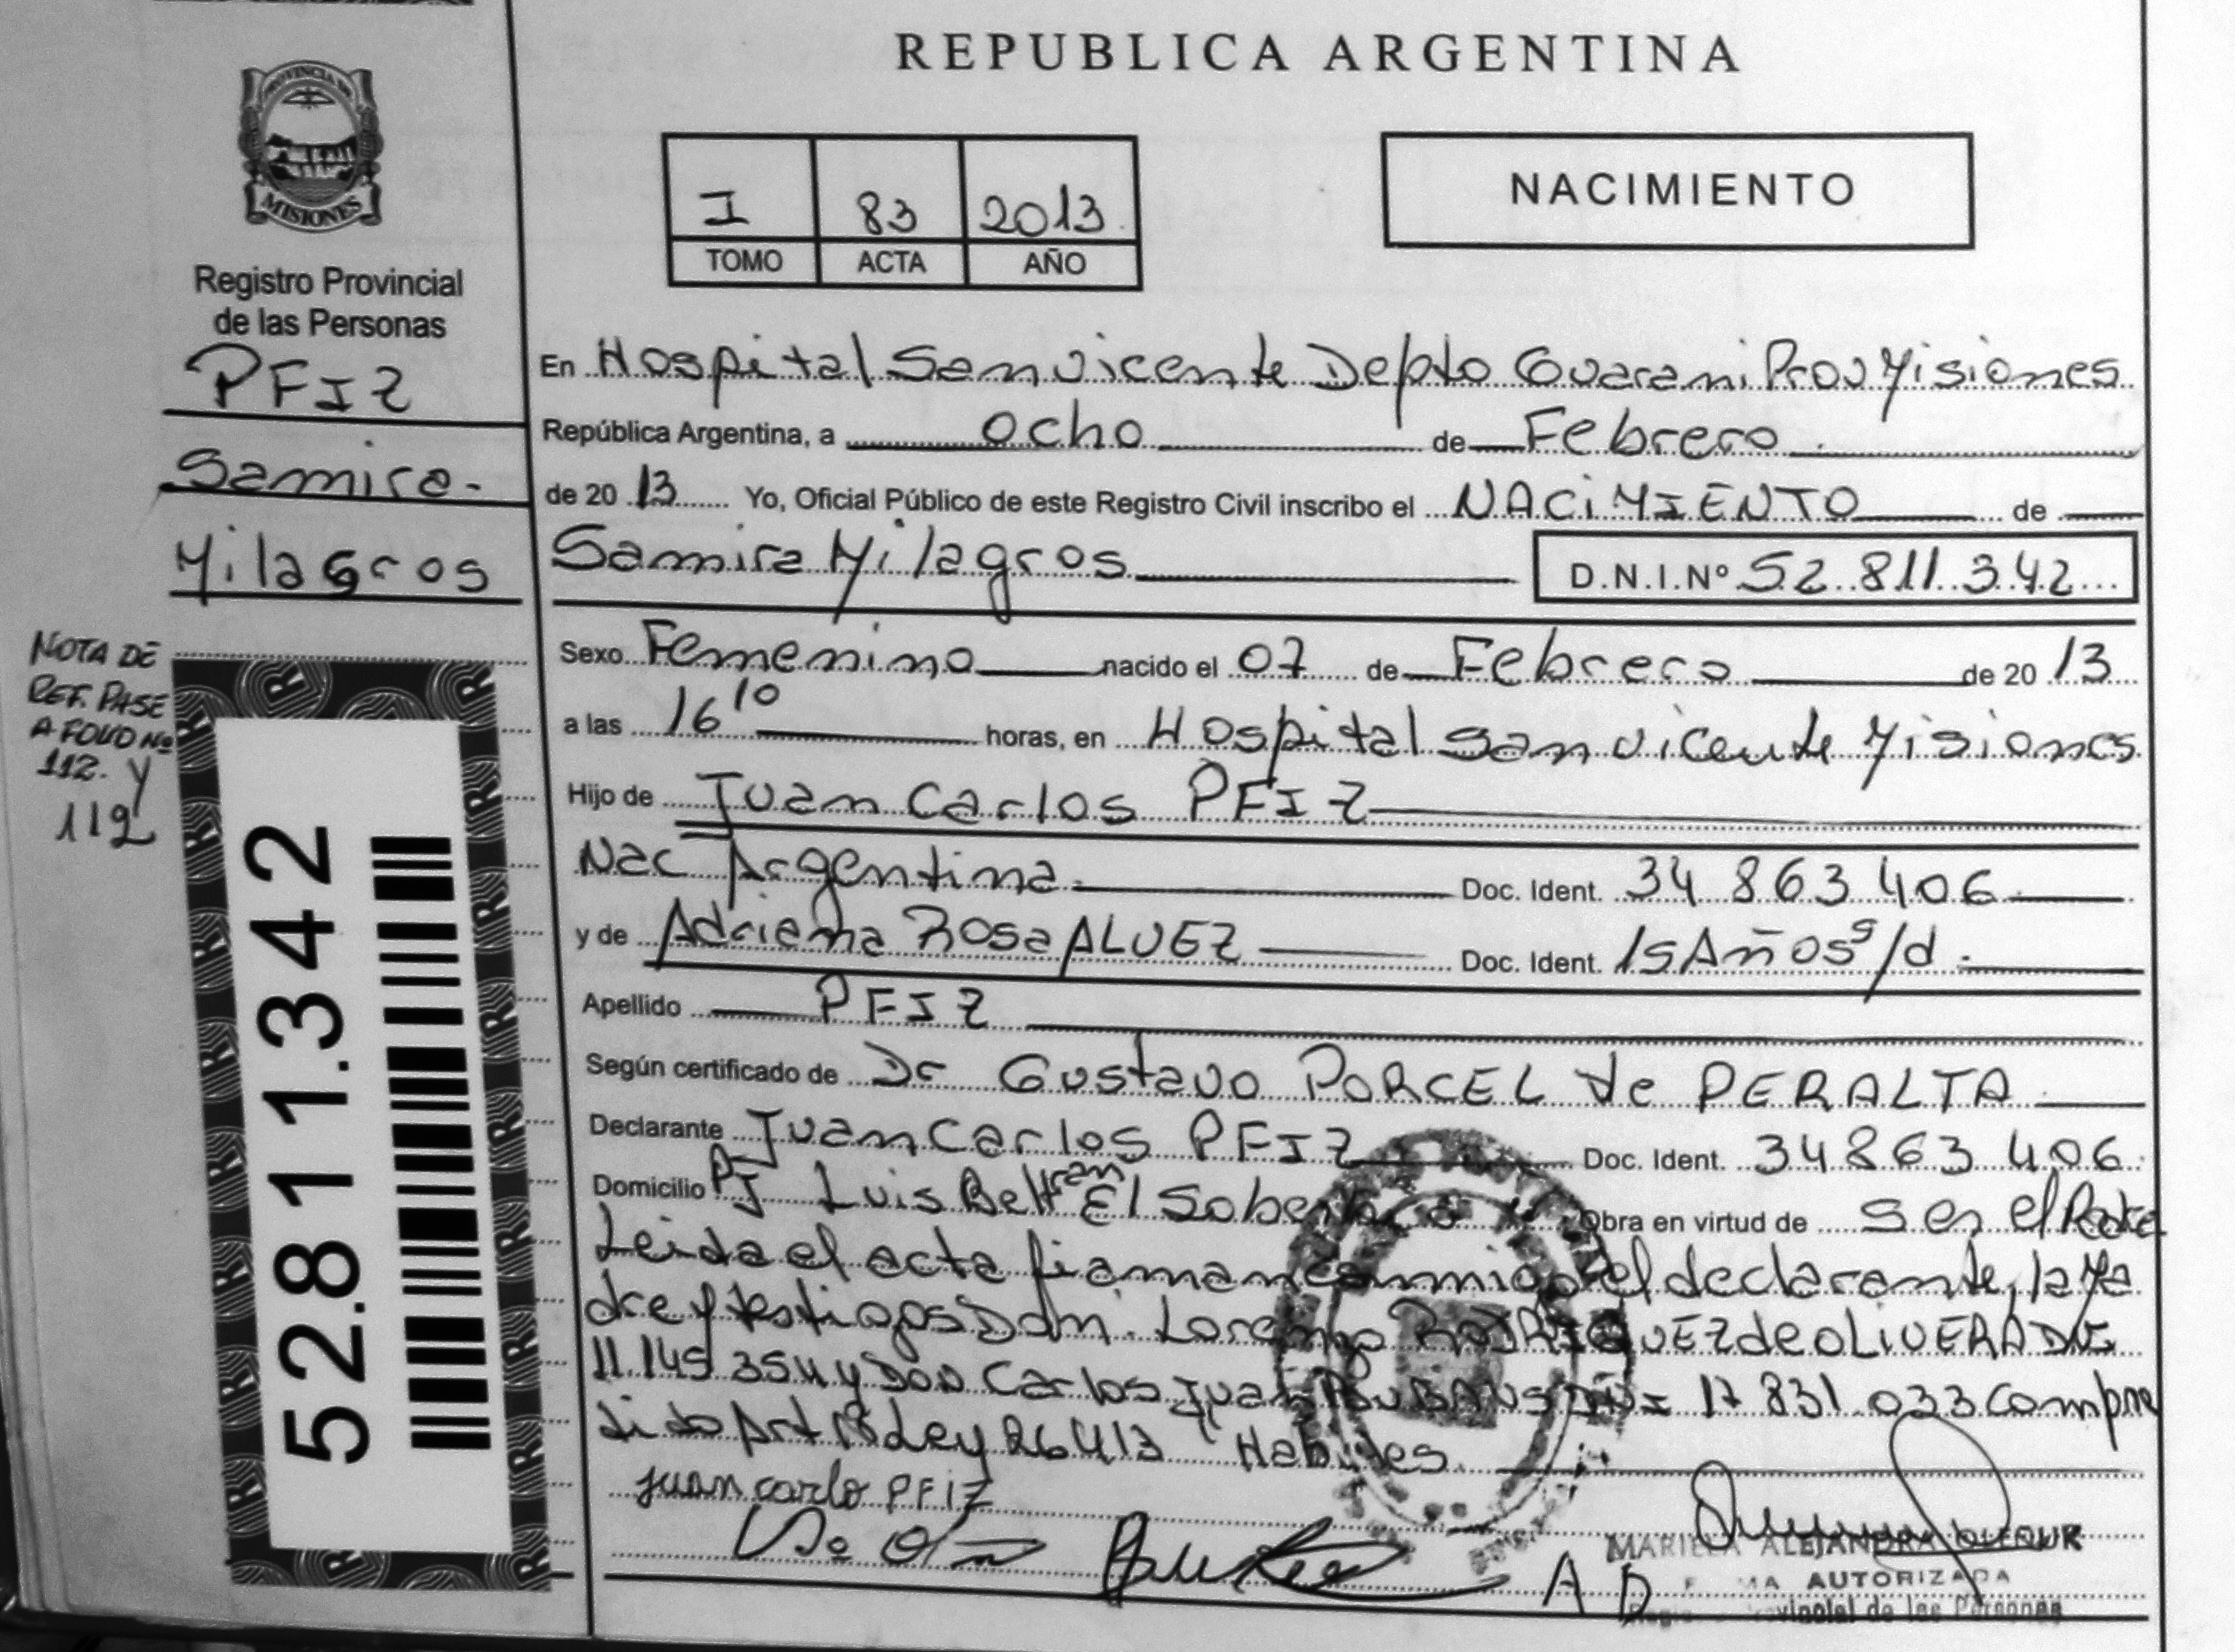 REPUBLICA ARGENTINA
PROVINCIA DE
MISIONES
Registro Provincial
de las Personas
PFIZ
Samira
Milagros
NOTA DE
REF. PASE
A FOLIO Nº
112. y
119
52.811.342
I 83 2013
TOMO ACTA AÑO
NACIMIENTO
En Hospital San vicente Depto Guarani Prov Misiones
República Argentina, a ocho de Febrero
de 20 13 Yo, Oficial Público de este Registro Civil inscribo el NACIMIENTO de
Samira Milagros D.N.I.Nº 52.811.342
Sexo Femenino nacido el 07 de Febrero de 20 13
a las 16 10 horas, en Hospital San vicente Misiones
Hijo de Juan Carlos PFIZ
Nac Argentina Doc. Ident. 34 863 406
y de Adriana Rosa ALVEZ Doc. Ident. 15 Años s/d
Apellido PFIZ
Según certificado de Dr Gustavo PORCEL de PERALTA
Declarante Juan Carlos PFIZ Doc. Ident. 34 863 406
Domicilio PJ Luis Beltran El Soberbio Obra en virtud de ser el Padre
Leida el acta firman conmigo el declarante, la Ma
dre y testigos Don Lorenzo RODRIGUEZ de OLIVERA DNI
11.145 354 y Don Carlos Juan DNI 17 831 033 Compre
tido Art Ley 26413 Habiles
juan carlo PFIZ
A D
ALEJANDRA
AUTORIZADA
de las Personas